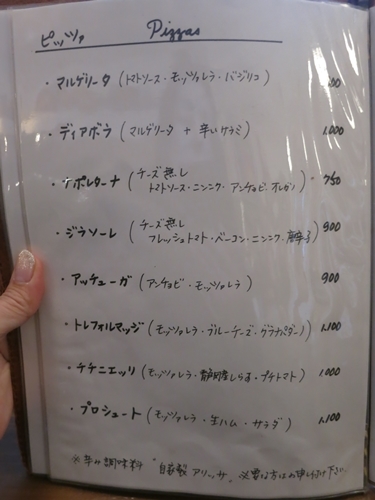 ピッツァ Pizzas
・マルゲリータ (トマトソース・モッツァレラ・バジリコ) 800
・ディアボラ (マルゲリータ + 辛いサラミ) 1,000
・ナポレターナ (チーズ無し
トマトソース・ニンニク・アンチョビ・オレガノ) 750
・ジラソーレ (チーズ無し
フレッシュトマト・ベーコン・ニンニク・唐辛子) 900
・アッチューガ (アンチョビ・モッツァレラ) 900
・トレフォルマッジ (モッツァレラ・ブルーチーズ・グラナパダーノ) 1,100
・チチニエッリ (モッツァレラ・静岡産しらす・プチトマト) 1,000
・プロシュート (モッツァレラ・生ハム・サラダ) 1,100
※辛み調味料 "自家製アリッサ" ※要る方はお申し付け下さい。